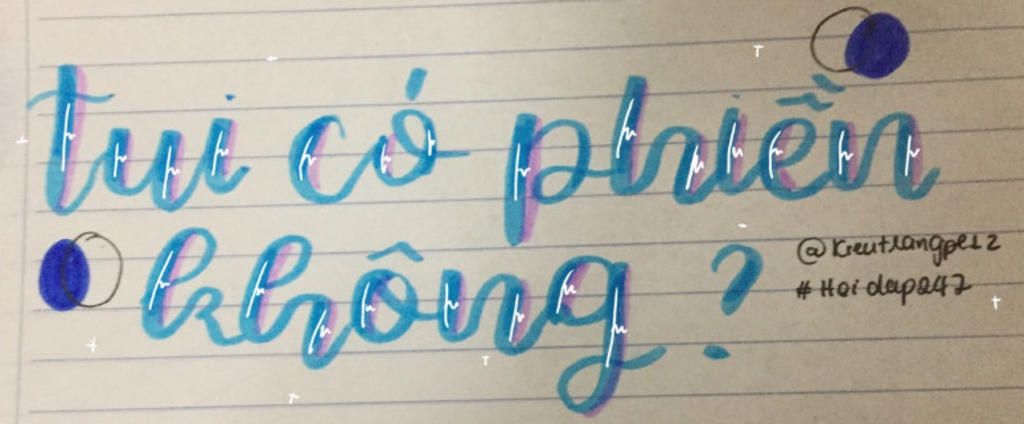 tui có phiền
không ?
@Kreutrangpe12
#Hoidap247